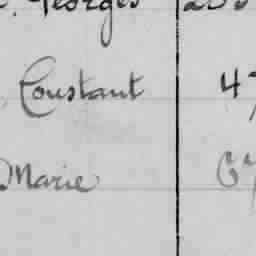 Georges
Constant 47
Marie